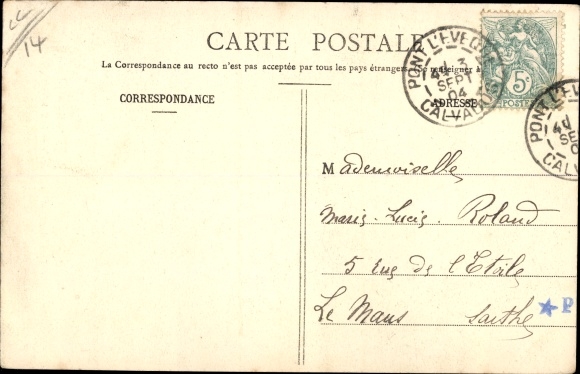 CC
14
CARTE POSTALE
La Correspondance au recto n'est pas acceptée par tous les pays étrangers (Se renseigner à
CORRESPONDANCE
ADRESSE
PONT L'EVEQUE
4E 3
SEPT
04
CALVADOS
5c
POSTES
PONT L'EVE
4E
SE
0
CALVA
Mademoiselle
Marie-Lucie Roland
5 rue de l'Etoile
Le Mans Sarthe
P